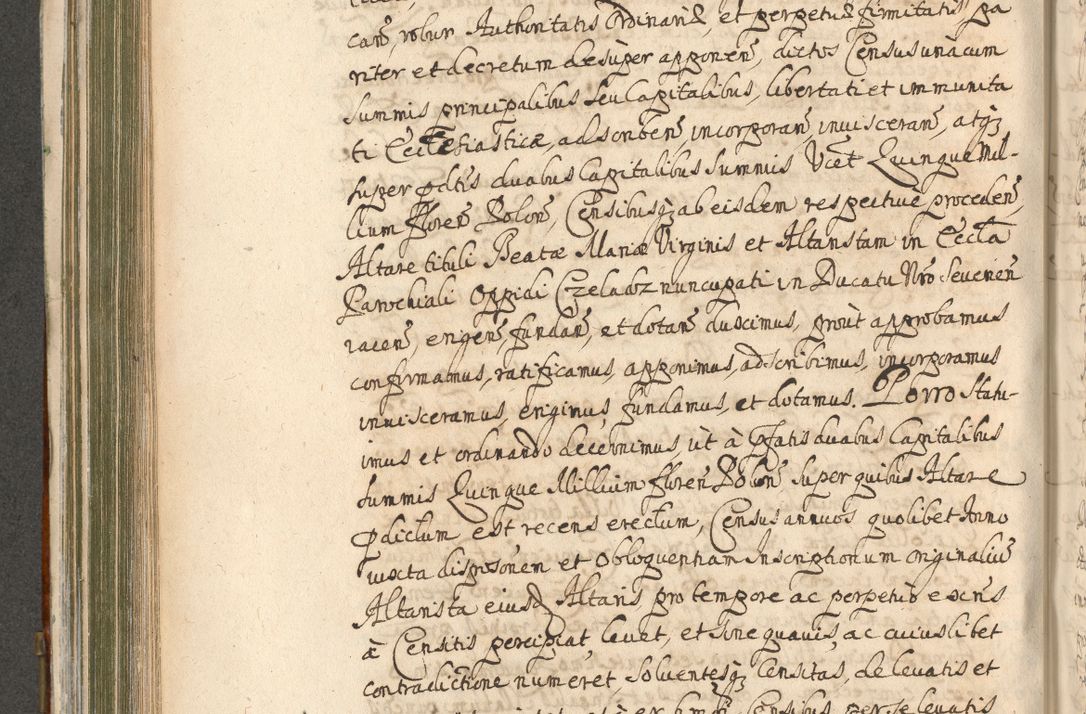 can̄, robur Authoritatis Ordinariæ, et perpetuæ firmitatis pa
riter et decretum desùper apponen̄, dictos Census unàcum
summis principalibus seu Capitalibus, libertati et immunita
ti Ecclesiasticæ, adscriben̄, incorporan̄, inuisceran̄, atq̄
super p̄dtis duabus Capitalibus summis Vcet Quinque Mil-
lium floren̄ Polon̄, Censibusq̄ ab eisdem respectiuè proceden̄,
Altare tituli Beatæ Mariæ Virginis et Altaristam in Eccła
Parochiali Oppidi Czeladz nuncupati in Ducatu Nro Seuerien̄
iacen̄, erigen̄, fundan̄, et dotan̄ duximus, proùt approbamus
confirmamus, ratificamus, apponimus, adscribimus, incorporamus
inuisceramus, erigimus, fundamus, et dotamus. Porro statu-
imus et ordinando decernimus, ùt à p̄fatis duabus Capitalibus
summis Quinque Millium floren̄ Polon̄, super quibus Altare
p̄dictum est recens erectum, Census annuos quolibet Anno
iuxta disposōnem et obloquentiam Inscriptionum originaliū
Altarista eiusd̄ Altaris pro tempore ac perpetuò exīns
à Censitis percipiat, leuet, et sine quauis, ac cuiuslibet
contradictione numeret, soluentesq̄ Censitas, de leuatis et